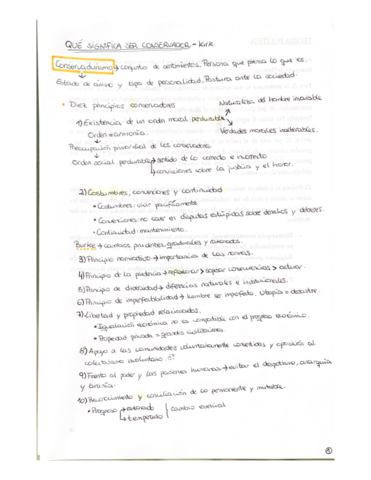 QUÉ SIGNIFICA SER CONSERVADOR - kirk
Conservadurismo → conjunto de sentimientos. Persona que piensa lo que es.
Estado de ánimo y tipo de personalidad. Postura ante la sociedad.
• Diez principios conservadores
Naturaleza del hombre invariable
1) Existencia de un orden moral perdurable
Orden = armonía.
Verdades morales inalterables.
Preocupación primordial de los conservadores
Orden social perdurable → sentido de lo correcto e incorrecto
→ convicciones sobre la justicia y el honor.
2) Costumbres, convenciones y continuidad
• Costumbres: vivir pacíficamente
• Convenciones: no caer en disputas estúpidas sobre derechos y deberes.
• Continuidad: mantenimiento.
Burke → cambios prudentes, graduales y razonados.
3) Principio normativo → importancia de las normas.
4) Principio de la prudencia → reflexionar > sopesar consecuencias > actuar.
5) Principio de diversidad → diferencias naturales e institucionales.
6) Principio de imperfectibilidad → hombre es imperfecto. Utopía = desastre.
7) Libertad y propiedad relacionados.
• Igualación económica no es compatible con el progreso económico.
• Propiedad privada = grandes civilizaciones.
8) Apoyo a las comunidades voluntariamente consentidas y oposición al
colectivismo involuntario.
9) Frente al poder y las pasiones humanas → evitar el despotismo, anarquía
y tiranía.
10) Reconocimiento y conciliación de lo permanente y mutable.
• Progreso → razonado
→ temperado
cambio esencial